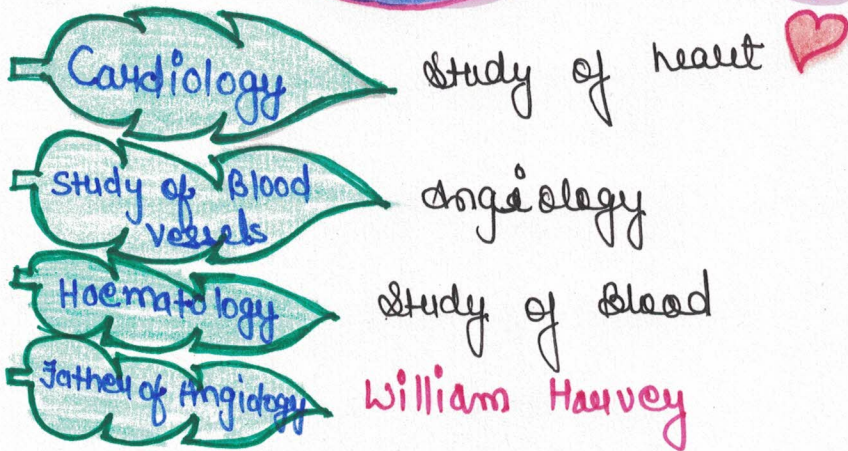 Cardiology Study of heart
Study of Blood vessels Angiology
Haematology Study of Blood
Father of Angiology William Harvey